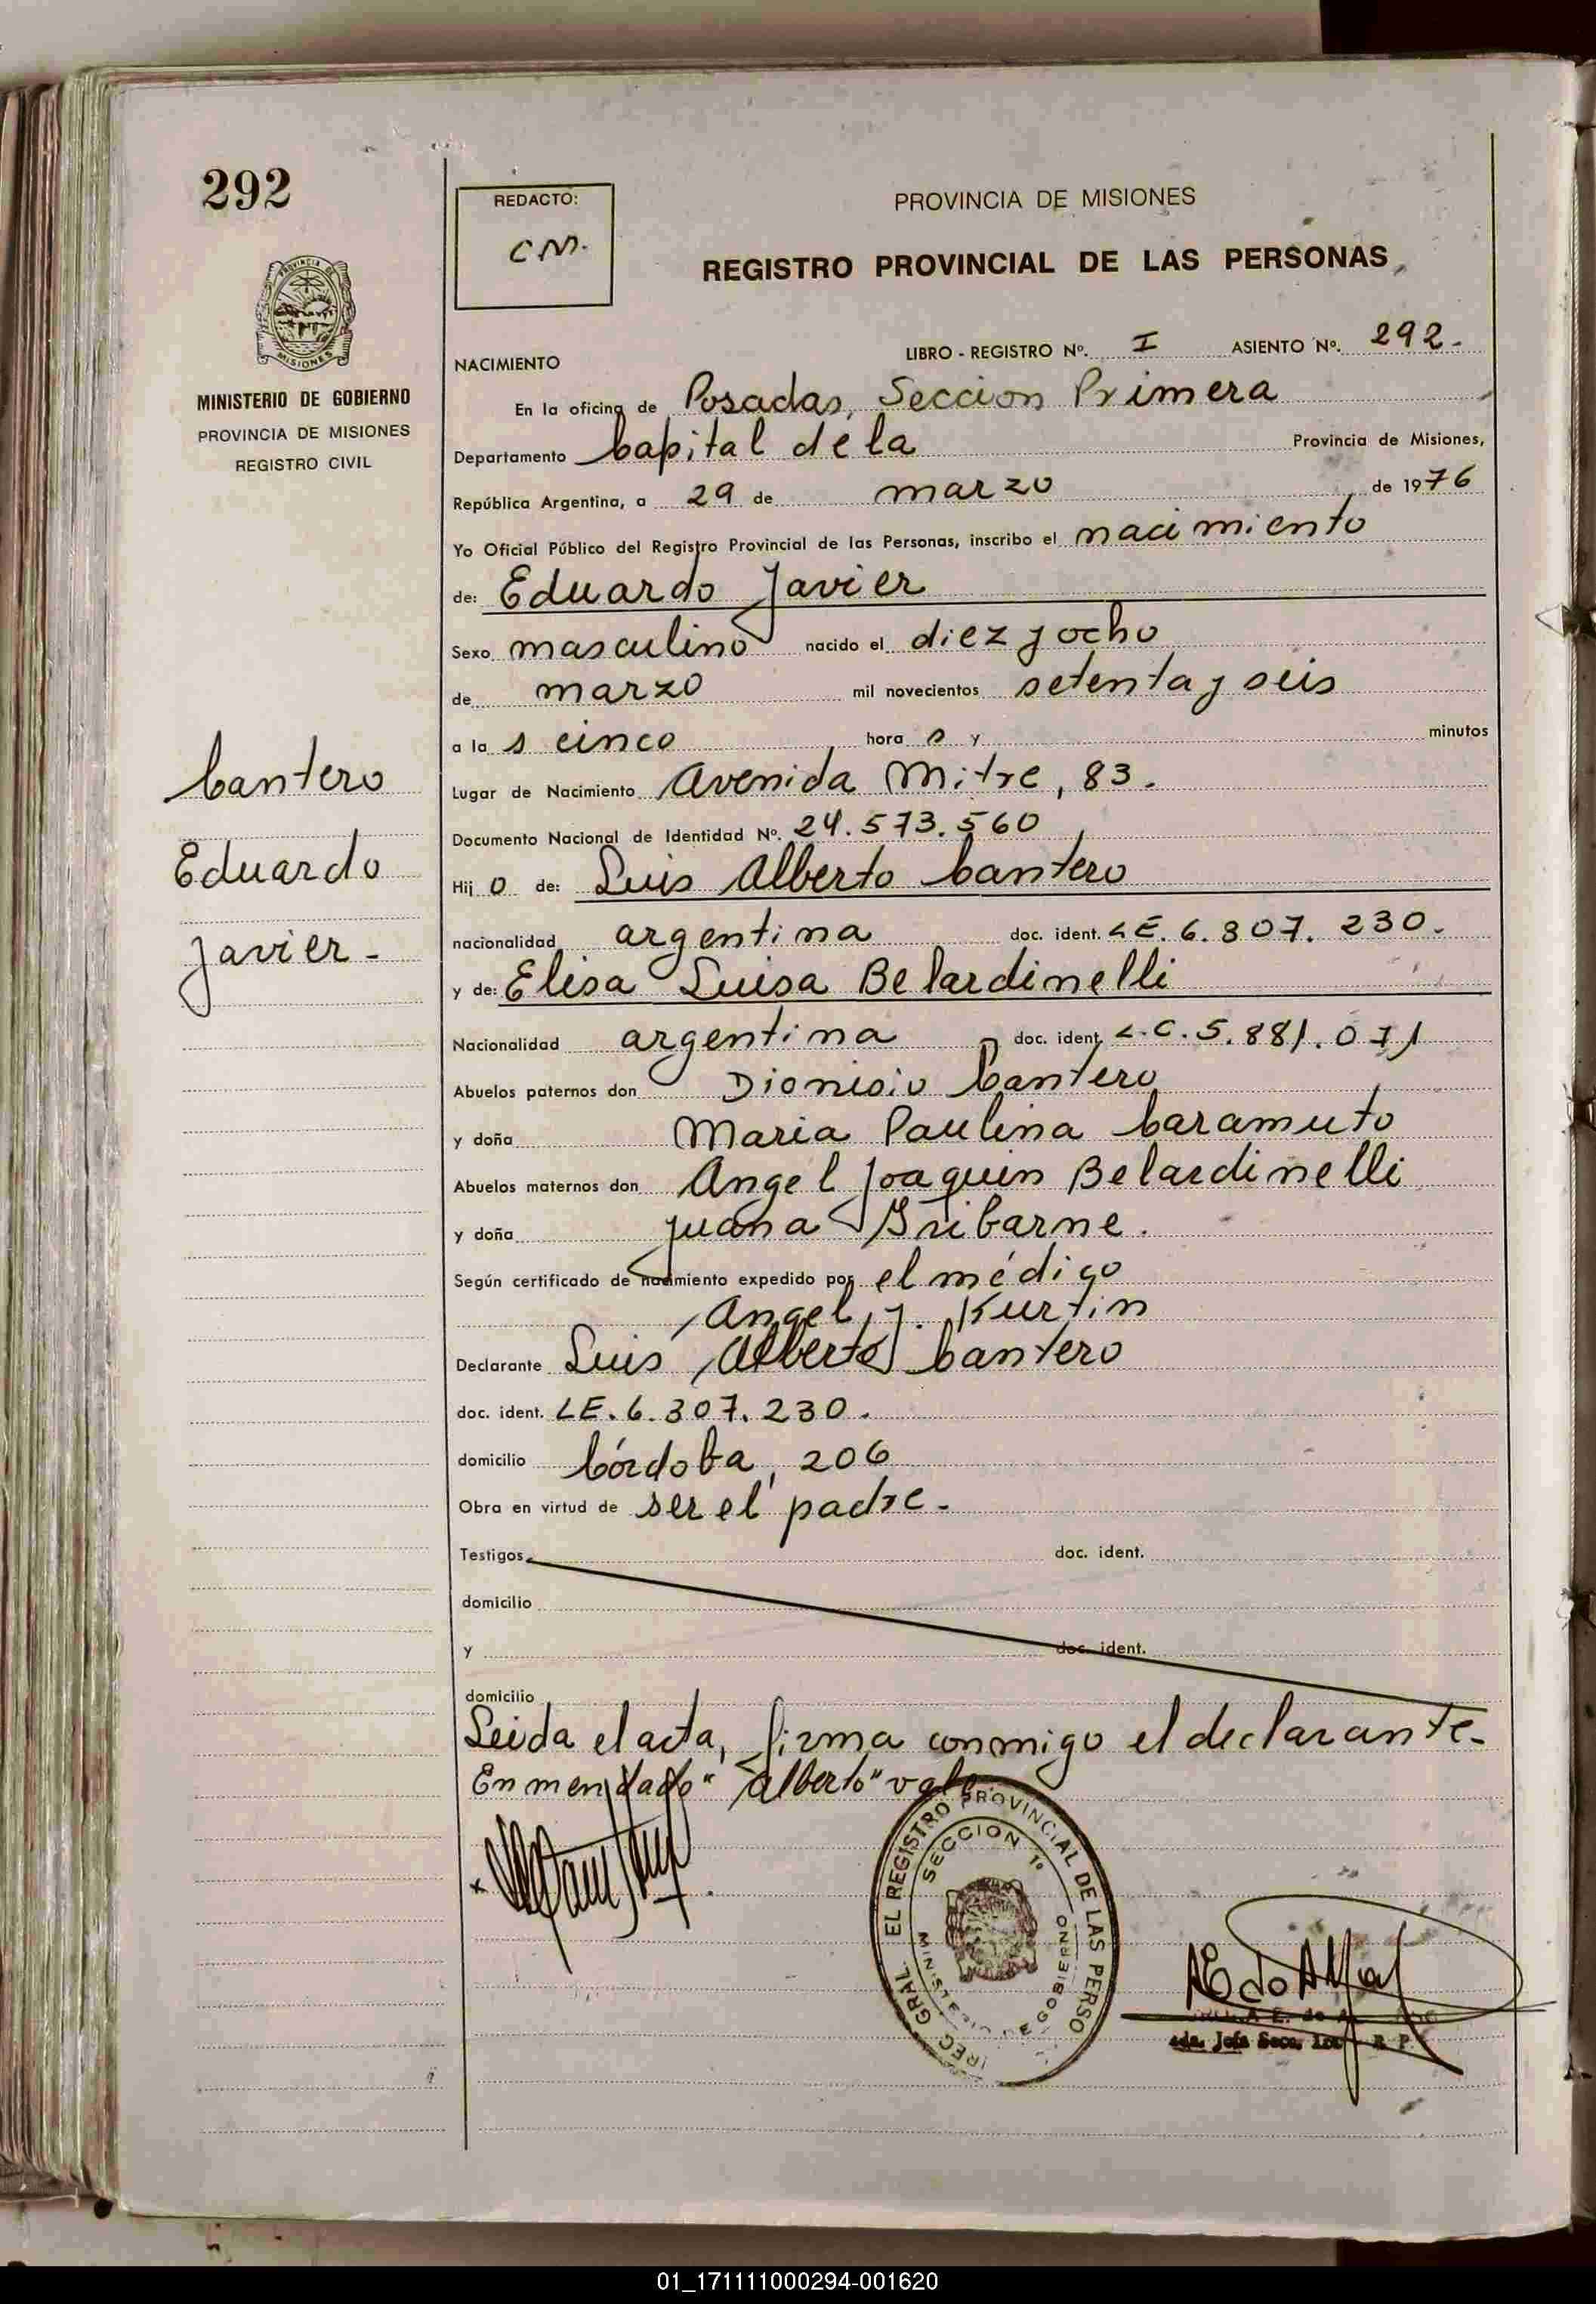 292
REDACTO:
C M.
PROVINCIA DE MISIONES
REGISTRO PROVINCIAL DE LAS PERSONAS
MINISTERIO DE GOBIERNO
PROVINCIA DE MISIONES
REGISTRO CIVIL
NACIMIENTO LIBRO - REGISTRO Nº. I ASIENTO Nº. 292.
En la oficina de Posadas, Seccion Primera
Departamento Capital de la Provincia de Misiones,
República Argentina, a 29 de marzo de 1976
Yo Oficial Público del Registro Provincial de las Personas, inscribo el nacimiento
de: Eduardo Javier
Sexo masculino nacido el diez y ocho
de marzo mil novecientos setenta y seis
a la s cinco hora s y minutos
Cantero
Eduardo
Javier -
Lugar de Nacimiento Avenida Mitre, 83.
Documento Nacional de Identidad Nº. 24.573.560
Hij o de: Luis Alberto Cantero
nacionalidad argentina doc. ident. LE. 6.307.230.
y de: Elisa Luisa Belardinelli
Nacionalidad argentina doc. ident. L.C. 5.881.071
Abuelos paternos don Dionisio Cantero
y doña Maria Paulina Caramuto
Abuelos maternos don Angel Joaquin Belardinelli
y doña Juana
Según certificado de nacimiento expedido por el médico
Angel J. Kurtin
Declarante Luis Alberto Cantero
doc. ident. LE. 6.307.230.
domicilio Córdoba, 206
Obra en virtud de ser el padre.
Testigos doc. ident.
domicilio
y doc. ident.
domicilio
Leida el acta, firma conmigo el declarante.
Enmendado "Alberto" vale.
EL REGISTRO PROVINCIAL DE LAS PERSO
SECCION 1º
MINISTERIO DE GOBIERNO
GRAL.
01_171111000294-001620